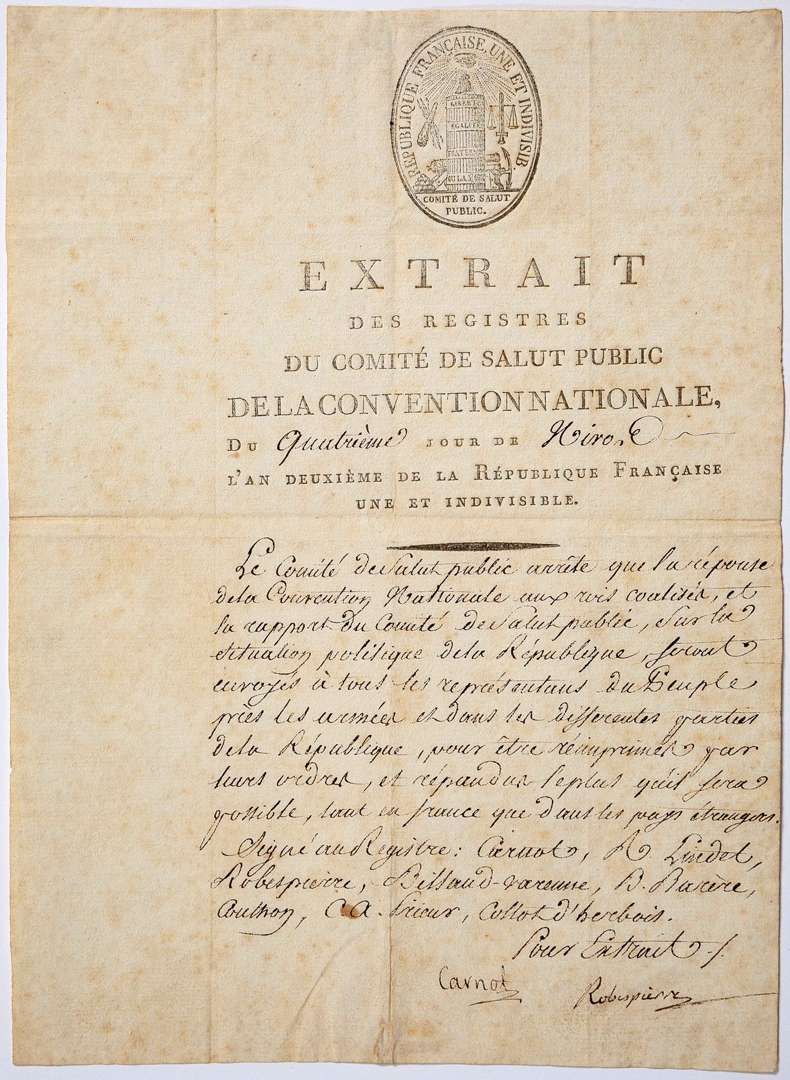 RÉPUBLIQUE FRANÇAISE, UNE ET INDIVISIB
LIBERTÉ
ÉGALITÉ
FRATERN
OU LA
COMITÉ DE SALUT
PUBLIC.
EXTRAIT
DES REGISTRES
DU COMITÉ DE SALUT PUBLIC
DE LA CONVENTION NATIONALE,
DU Quatrième JOUR DE Nivose
L'AN DEUXIÈME DE LA RÉPUBLIQUE FRANÇAISE
UNE ET INDIVISIBLE.
Le Comité de Salut public arrête que la réponse
de la Convention Nationale aux rois coalisés, et
la rapport du Comité de Salut public, sur la
situation politique de la République, seront
envoyés à tous les représentans du Peuple
près les armées et dans les differentes parties
de la République, pour être réimprimés par
leurs ordres, et répandus le plus qu'il sera
possible, tant en france que dans les pays étrangers.
Signé au Registre: Carnot, R. Lindet,
Robespierre, Billaud-varenne, B. Barère,
Couthon, C. A. Prieur, Collot d'herbois.
Pour Extrait ./.
Carnot Robespierre